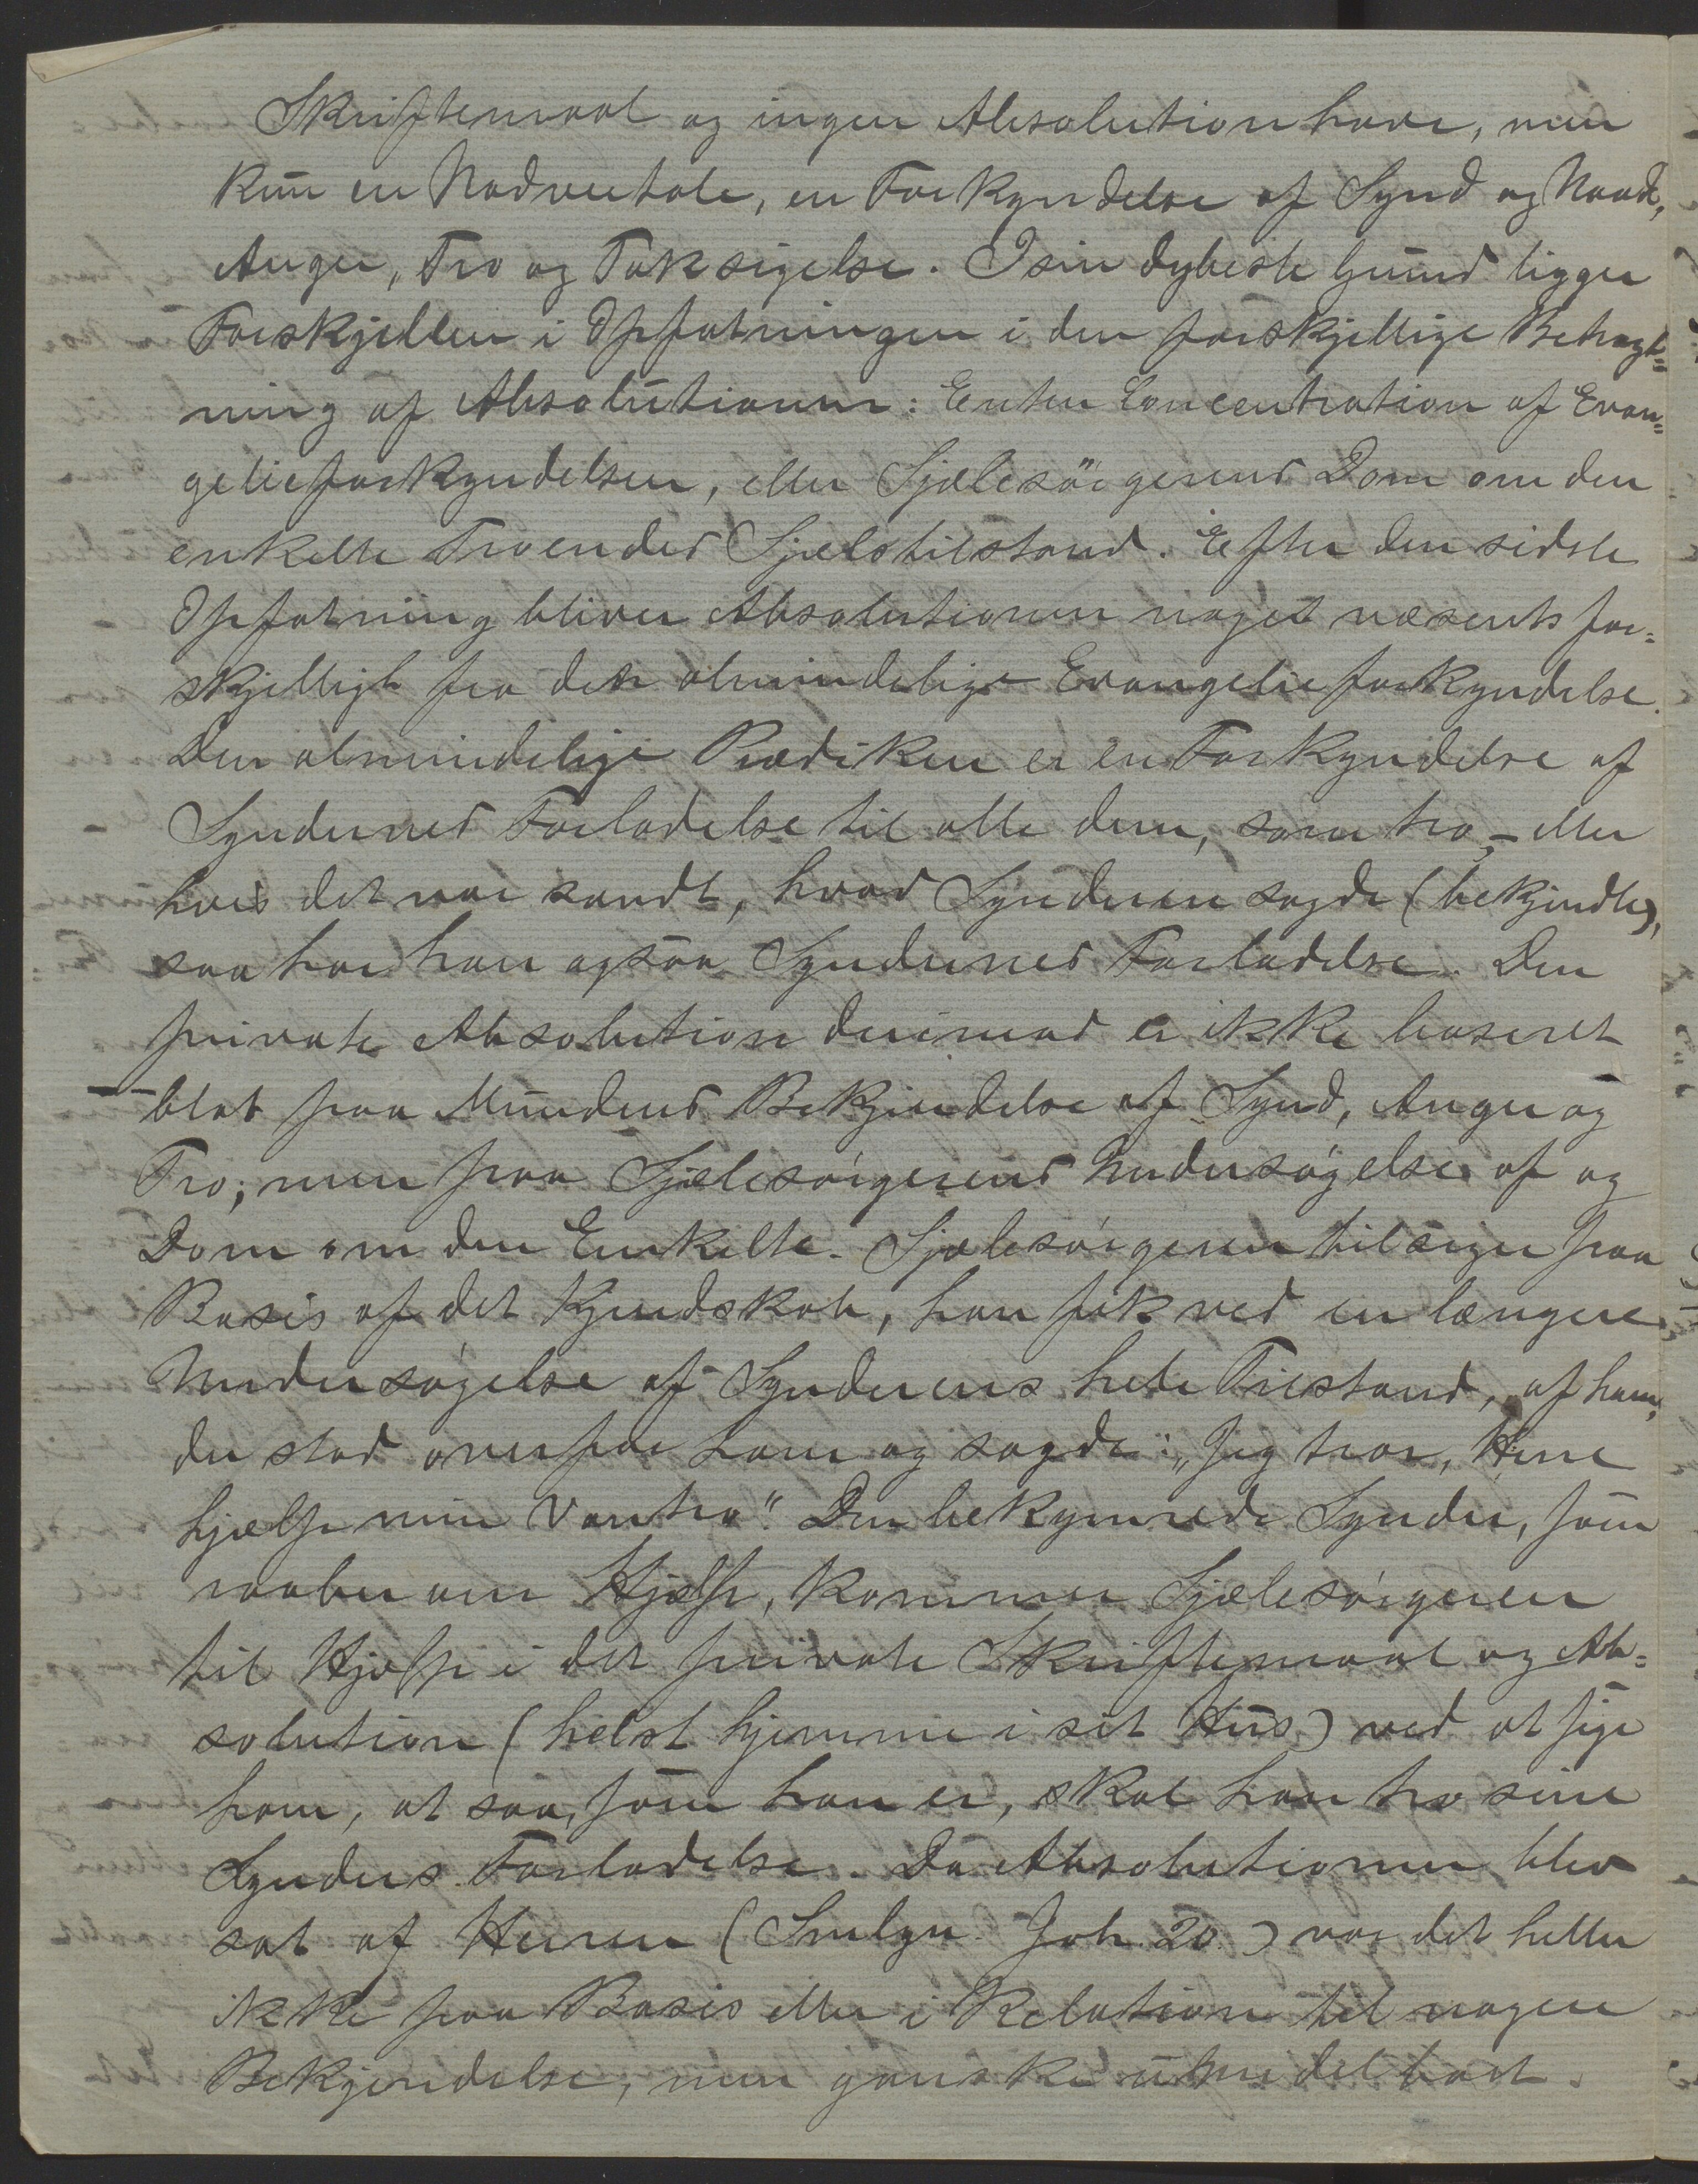 Skriftemaal og ingen Absolution have, men
kun en Nadvertale, en Forkyndelse af Synd og Naade,
Anger, Tro og Taksigelse. I sin dybeste Grund ligger
Forskjellen i Opfatningen i den forskjellige Betragt=
ning af Absolutionen: Enten Concentration af Evan=
gelieforkyndelsen, eller Sjælesörgerens Dom om den
enkelte Troendes Sjælstilstand. Efter den sidste
Opfatning bliver Absolutionen noget væsents for=
skjelligt fra den almindelige Evangelieforkyndelse.
Den almindelige Prædiken er en Forkyndelse af
Syndernes Forladelse til alle dem, som tro, – eller
hvis det var sandt, hvad Synderen sagde (bekjendte),
saa har han ogsaa Syndernes Forladelse. Den
private Absolution derimod er ikke baseret
blot paa Mundens Bekjendelse af Synd, Anger og
Tro; men paa Sjælesörgerens Undersögelse af og
Dom om den Enkelte. Sjælesörgeren tilsiger paa
Basis af det Kjendskab, han fik ved en længere
Undersögelse af Synderens hele Tilstand, af ham,
der stod overfor ham og sagde: „Jeg tror, Herre
hjælp min Vantro". Den bekymrede Synder, som
raaber om Hjælp, kommer Sjælesörgeren
til Hjælp i det private Skriftemaal og Ab=
solution (helst hjemme i sit Hus) ved at sige
ham, at saa, som han er, skal han tro sine
Synders Forladelse. Da Absolutionen blev
sat af Herren (Smlgn. Joh. 20.) var det heller
ikke paa Basis eller i Relation til nogen
Bekjendelse, men ganske umiddelbart.